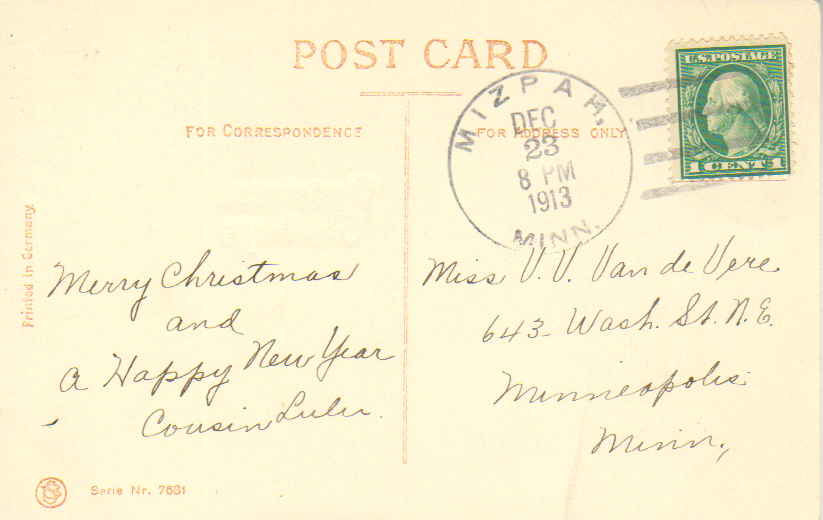 POST CARD
FOR CORRESPONDENCE
FOR ADDRESS ONLY
MIZPAH,
DEC
23
8 PM
1913
MINN.
U.S. POSTAGE
1 CENT 1
Printed in Germany
Merry Christmas
and
a Happy New Year
Cousin Lulu.
Miss V. V. Van de Vere
643- Wash. St. N.E.
Minneapolis
Minn.,
Serie Nr. 7631